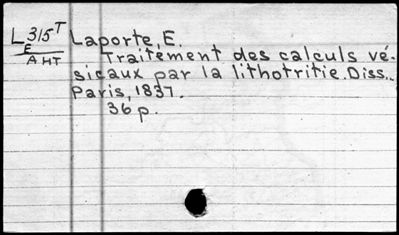 L 315 T Laporte, E.
E Traitement des calculs vé-
AHT sicaux par la lithotritie. Diss.,
Paris, 1837.
36 p.